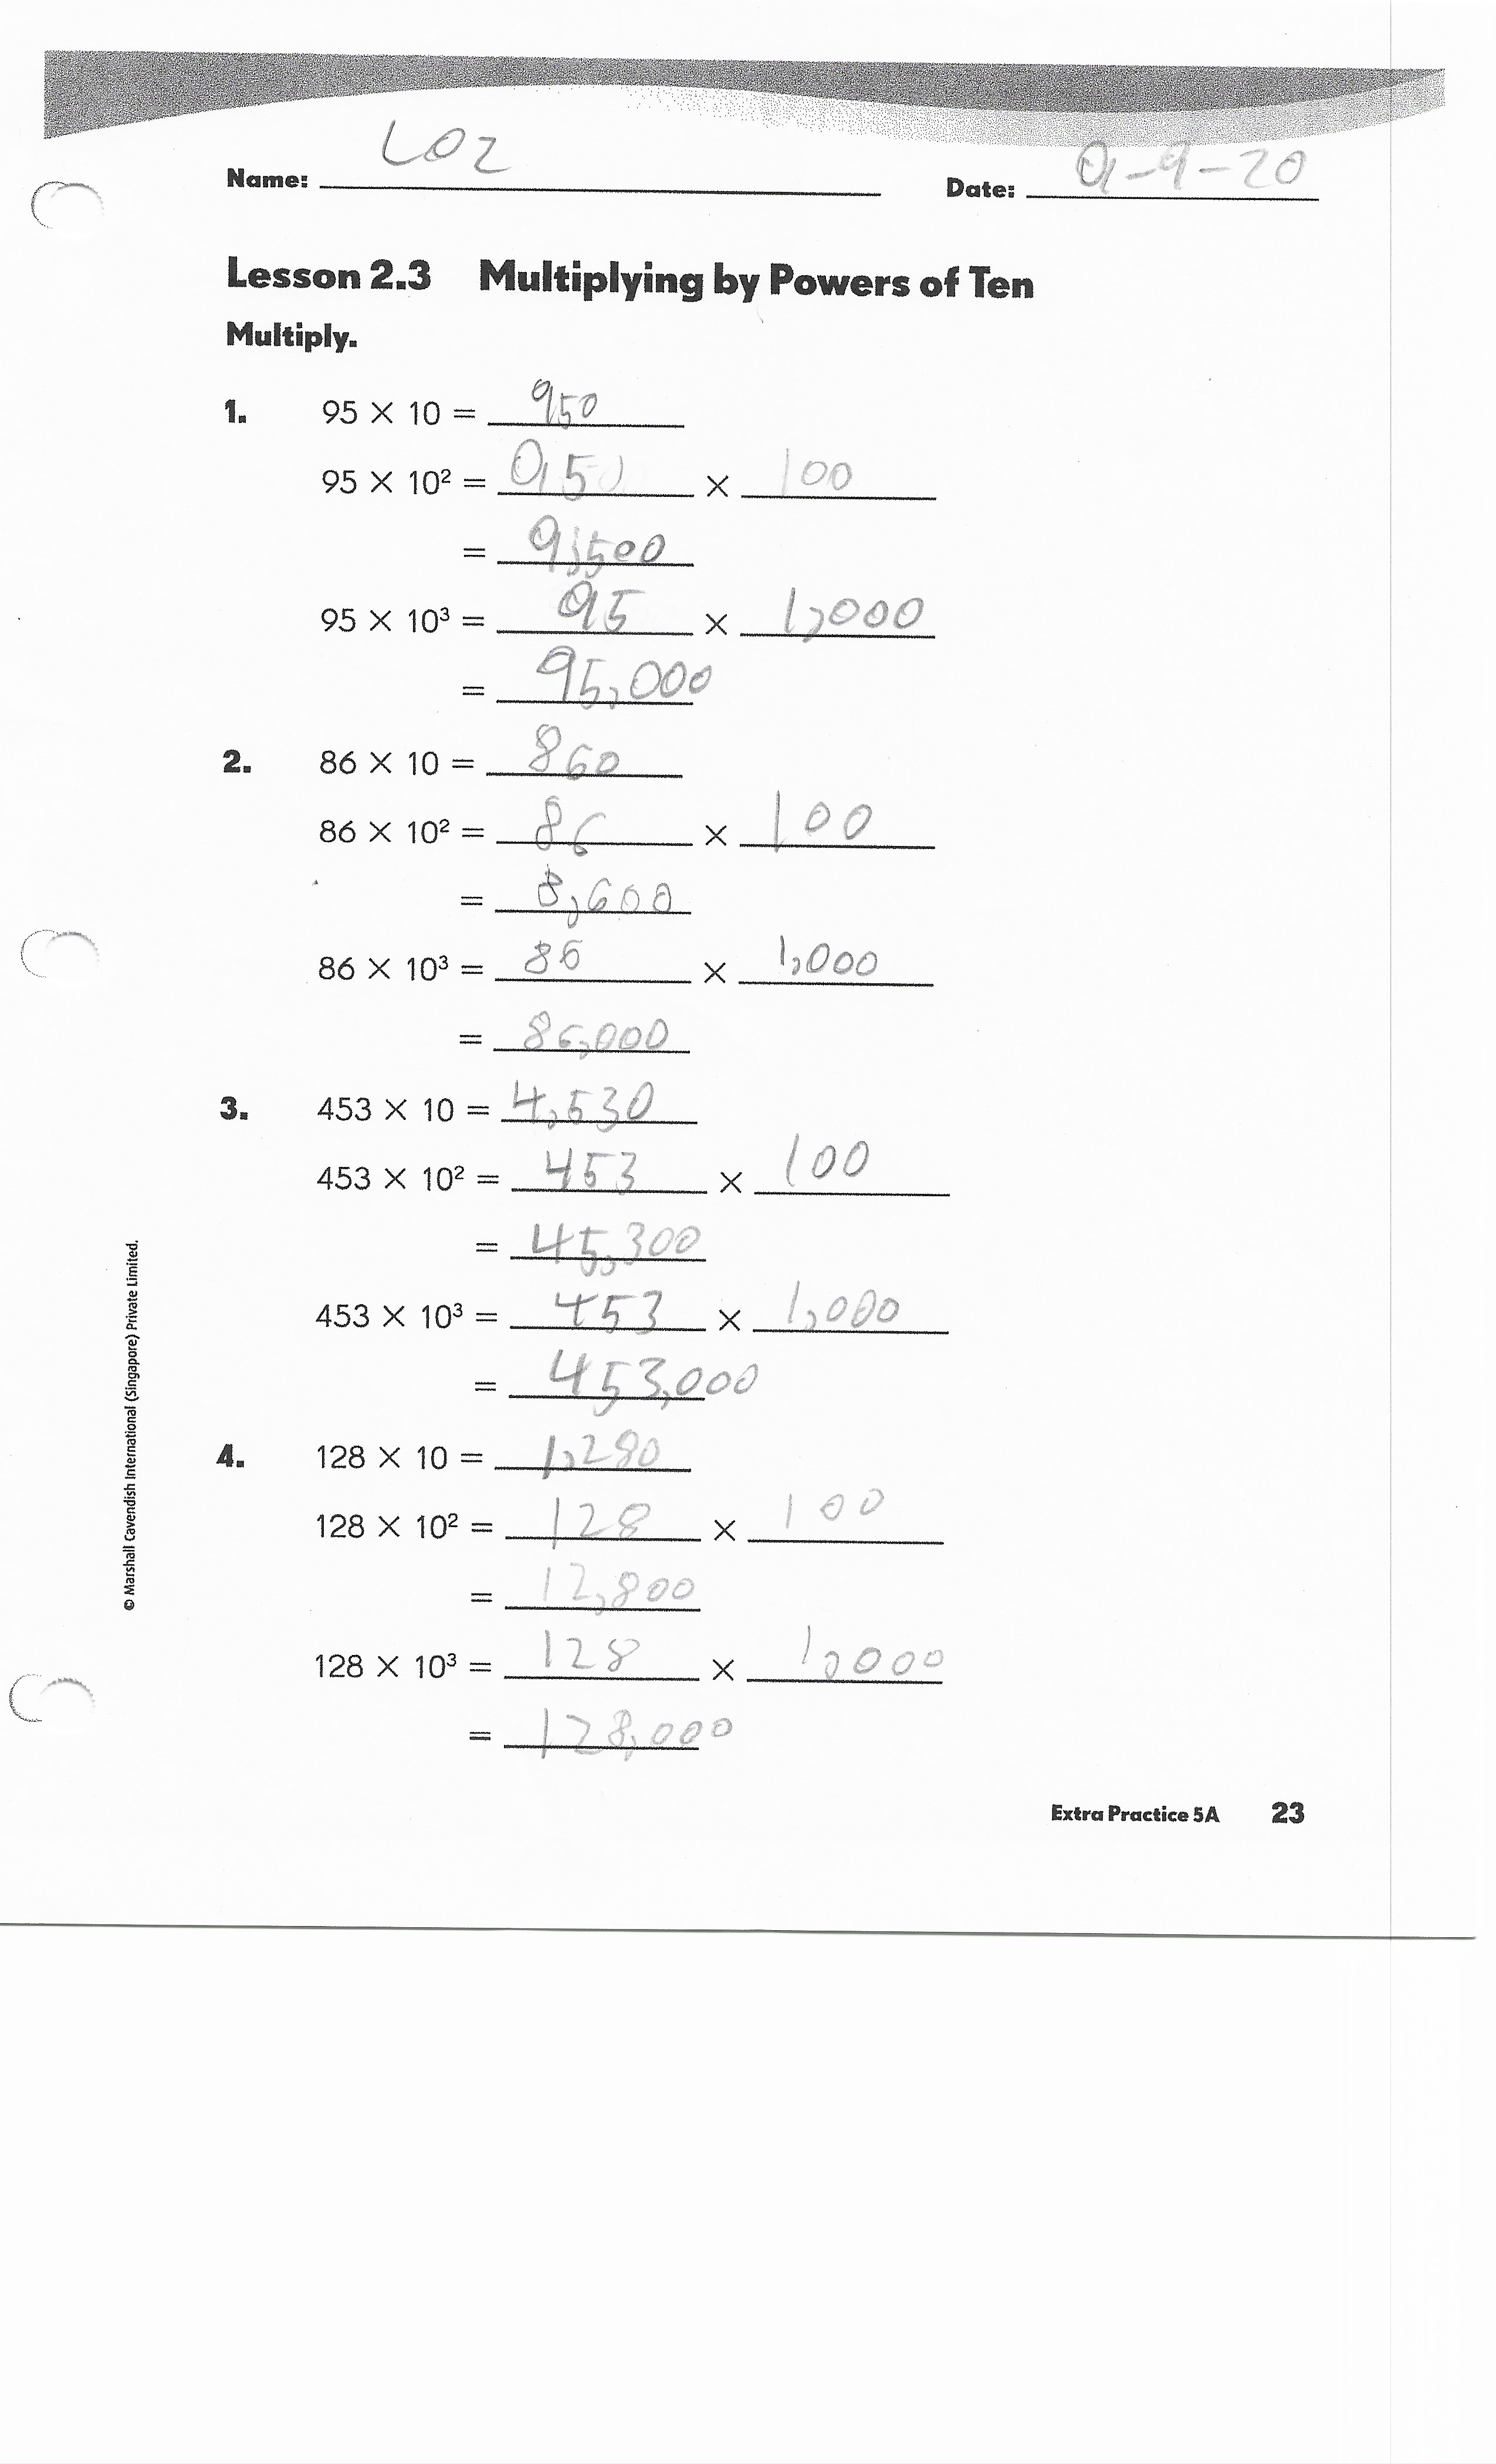 Name: LOZ Date: 9-9-20
Lesson 2.3 Multiplying by Powers of Ten
Multiply.
1. 95 × 10 = 950
95 × 10² = 95 × 100
= 9,500
95 × 10³ = 95 × 1,000
= 95,000
2. 86 × 10 = 860
86 × 10² = 86 × 100
= 8,600
86 × 10³ = 86 × 1,000
= 86,000
3. 453 × 10 = 4,530
453 × 10² = 453 × 100
= 45,300
453 × 10³ = 453 × 1,000
= 453,000
4. 128 × 10 = 1,280
128 × 10² = 128 × 100
= 12,800
128 × 10³ = 128 × 1,000
= 128,000
© Marshall Cavendish International (Singapore) Private Limited.
Extra Practice 5A 23